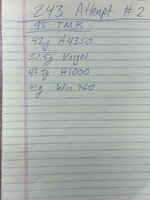 243 Attempt #2
95 TMK
42g H4350
37.5g Varget
47.5g H1000
41g Win 760